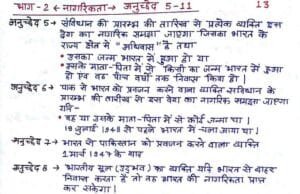 भाग - 2 नागरिकता → अनुच्छेद 5-11
13
अनुच्छेद 5 → संविधान की प्रारम्भ की तारिख से प्रत्येक व्यक्ति इस
देश का नागरिक समझा जाएगा जिसका भारत के
राज्य क्षेत्र में "अधिवास" है तथा
• उसका जन्म भारत में हुआ हो या
• उसके माता-पिता में से किसी का जन्म भारत में हुआ
हो या वह पाँच वर्षों तक निवास किया हो।
अनुच्छेद 6 → पाक से भारत को प्रवजन करने वाला व्यक्ति संविधान के
प्रारम्भ की तारीख से इस देश का नागरिक समझा जाएगा
यदि -
• वह या उसके माता-पिता में से कोई जन्मा था।
• 19 जुलाई 1948 से पहले भारत में चला आया था।
अनुच्छेद 7 → भारत से पाकिस्तान को प्रवजन करने वाला व्यक्ति
1 मार्च 1947 के बाद
अनुच्छेद 8 → भारतीय मूल (उद्भव) का व्यक्ति यदि भारत से बाहर
निवास करता है तो वह भारत की नागरिकता प्राप्त
कर सकेगा।